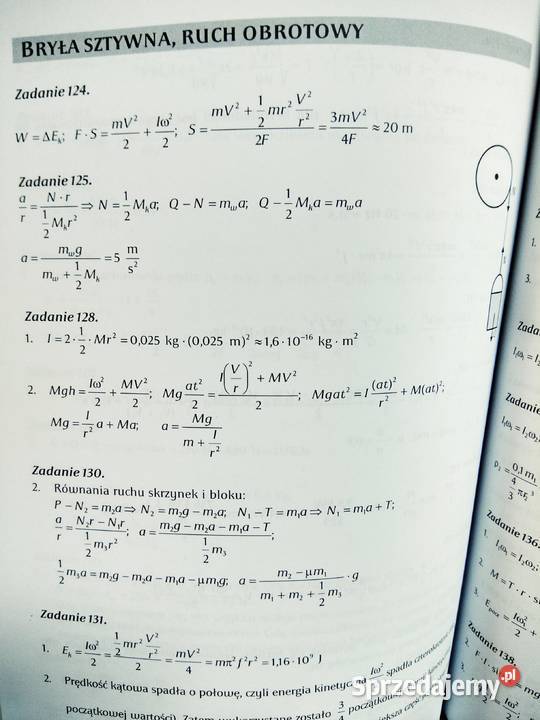 BRYŁA SZTYWNA, RUCH OBROTOWY
Zadanie 124.
W = ΔE_k; F · S = mV²/2 + Iω²/2; S = (mV² + 1/2 mr² V²/r²)/(2F) = 3mV²/4F ≈ 20 m
Zadanie 125.
a/r = (N · r)/(1/2 M_k r²) ⇒ N = 1/2 M_k a; Q − N = m_w a; Q − 1/2 M_k a = m_w a
a = m_w g/(m_w + 1/2 M_k) = 5 m/s²
Zadanie 128.
1. I = 2 · 1/2 · Mr² = 0,025 kg · (0,025 m)² ≈ 1,6 · 10⁻¹⁶ kg · m²
2. Mgh = Iω²/2 + MV²/2; Mg at²/2 = (I(V/r)² + MV²)/2; Mgat² = I (at)²/r² + M(at)²;
Mg = I/r² a + Ma; a = Mg/(m + I/r²)
Zadanie 130.
2. Równania ruchu skrzynek i bloku:
P − N₂ = m₂a ⇒ N₂ = m₂g − m₂a; N₁ − T = m₁a ⇒ N₁ = m₁a + T;
a/r = (N₂r − N₁r)/(1/2 m₃r²); a = (m₂g − m₂a − m₁a − T)/(1/2 m₃);
1/2 m₃a = m₂g − m₂a − m₁a − μm₁g; a = (m₂ − μm₁)/(m₁ + m₂ + 1/2 m₃) · g
Zadanie 131.
1. E_k = Iω²/2 = (1/2 mr² V²/r²)/2 = mV²/4 = mπ²f²r² = 1,16 · 10⁹ J
2. Prędkość kątowa spadła o połowę, czyli energia kinetyczna Iω²/2 spadła czterokrotnie
początkowej wartości). Zatem wykorzystane zostało 3/4 początkowej
1.
3.
Zada
I₁ω₁ = I₂
Zadanie
I₁ω₁ = I₂ω₂,
ρ₂ = 0,1m₁/(4/3 πr₂³
Zadanie 136.
1. I₁ω₁ = I₂ω₂;
2. M = T · r · si
3.
Zadanie 138.
Sprzedajemy.pl